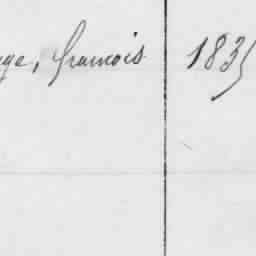 ge, François 1835